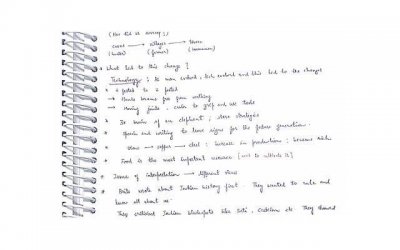 (How did we survey)
caves → villages → towns
(hunter) (farmer) (consumer)
* What led to this change?
Technology : As man evolved, tech evolved and this led to the changes
* 4 footed to 2 footed
→ Hands became free from walking
→ Moving joints, easier to grip and use tools
* Is brain of an elephant; were strategies
* Speech and writing to leave signs for the future generation.
* stone → copper → steel : increase in productions : become rich
* Food is the most important resource
* Issues of interpretation → different views
* Brits wrote about Indian history first. They wanted to rule and
know all about us
They criticised Indian like Sati, etc. They showed